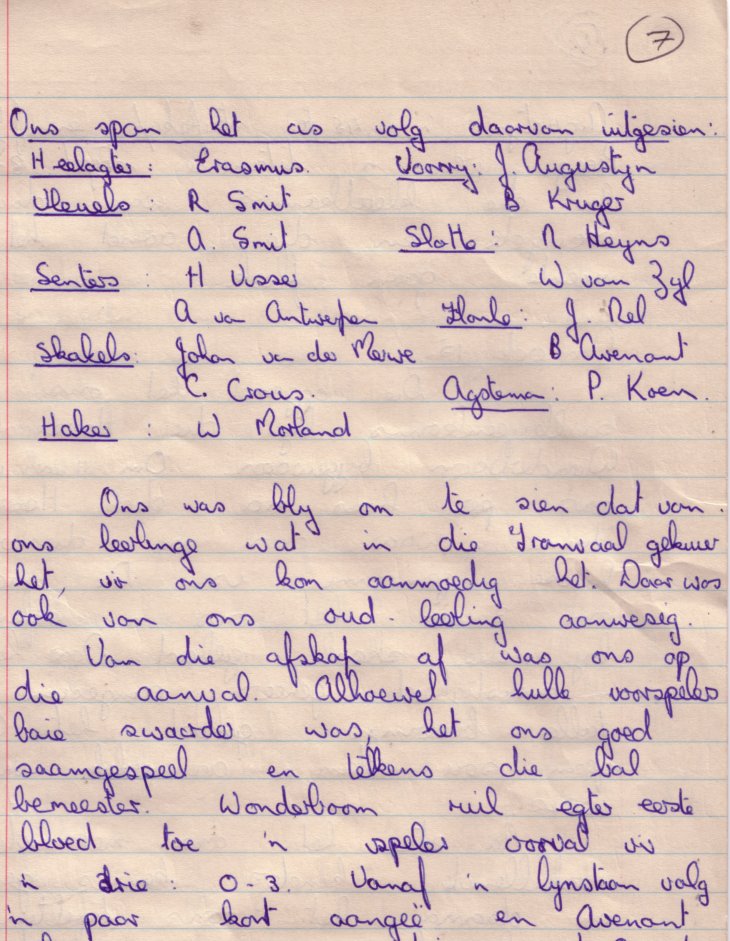 7
Ons span het as volg daarvan uitgesien:
Heelagter: Erasmus. Voorry: J. Augustyn
Vleuels: R Smit B Kruger
A. Smit Slotte: N Heyns
Senters: H Visser W van Zyl
A van Antwerpen Flanke: J. Nel
Skakels: Johan van der Merwe B Avenant
C. Crous. Agsteman: P. Koen.
Haker: W Morland
Ons was bly om te sien dat van
ons leerlinge wat in die Transvaal gekuier
het, vir ons kom aanmoedig het. Daar was
ook van ons oud-leerling aanwesig.
Van die afskop af was ons op
die aanval. Alhoewel hulle voorspelers
baie swaarder was, het ons goed
saamgespeel en telkens die bal
bemeester. Wonderboom ruil egter eerste
bloed toe 'n speler oorval vir
'n drie: 0-3. Vanaf 'n lynstaan volg
'n paar kort aangeë en Avenant